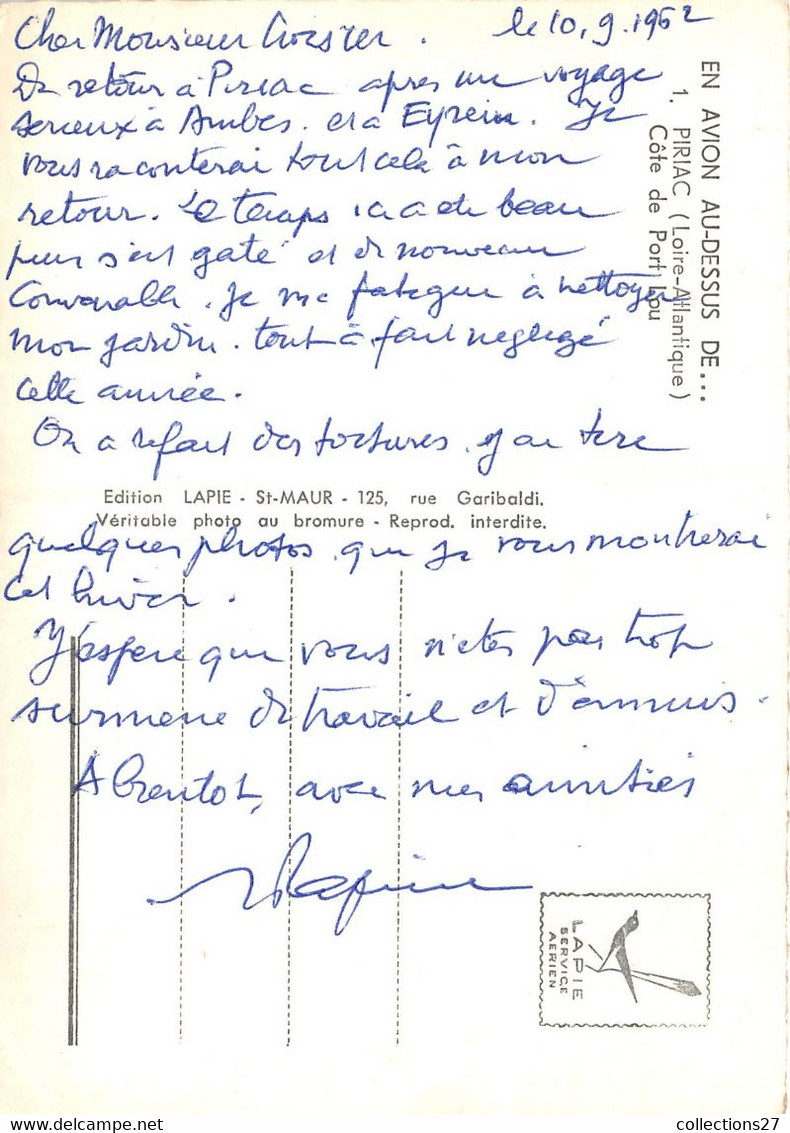 le 10.9.1962
Cher Monsieur
De retour à Piriac après un voyage
serieux à Ambes. et à Eyrein. Je
vous raconterai tout cela à mon
retour. Le temps ici a ete beau
puis s'est gaté et de nouveau
Convenable. Je me fatigue à nettoyer
mon jardin. tout à fait negligé
cette année.
On a refait des toitures. j'ai tiré
quelques photos que je vous montrerai
cet hiver.
J'espere que vous n'etes pas trop
surmené de travail et d'ennuis.
A bientot, avec mes amitiés
EN AVION AU-DESSUS DE...
1. PIRIAC (Loire-Atlantique)
Côte de Port Lou
Edition LAPIE - St-MAUR - 125, rue Garibaldi.
Véritable photo au bromure - Reprod. interdite.
LAPIE
SERVICE
AERIEN
collections27